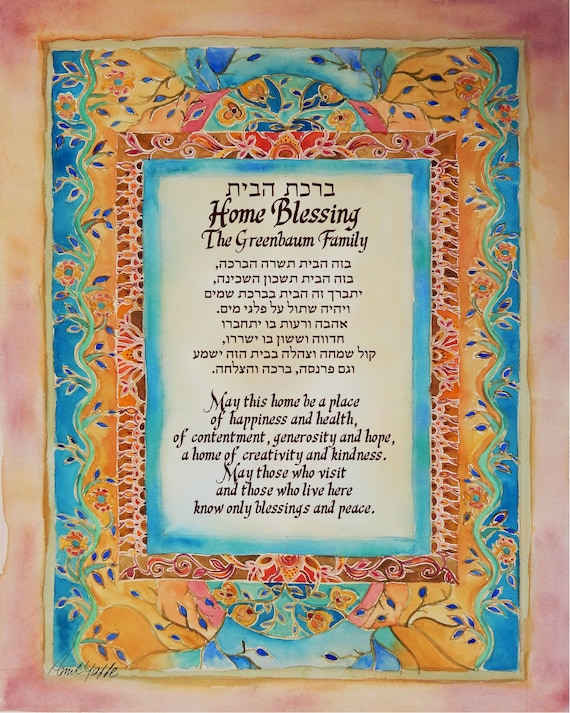 ברכת הבית
Home Blessing
The Greenbaum Family
בזה הבית תשרה הברכה,
בזה הבית תשכון השכינה,
יתברך זה הבית בברכת שמים
ויהיה שתול על פלגי מים.
אהבה ורעות בו יתחברו
חדווה וששון בו ישררו,
קול שמחה וצהלה בבית הזה ישמע
וגם פרנסה, ברכה והצלחה.
May this home be a place
of happiness and health,
of contentment, generosity and hope,
a home of creativity and kindness.
May those who visit
and those who live here
know only blessings and peace.